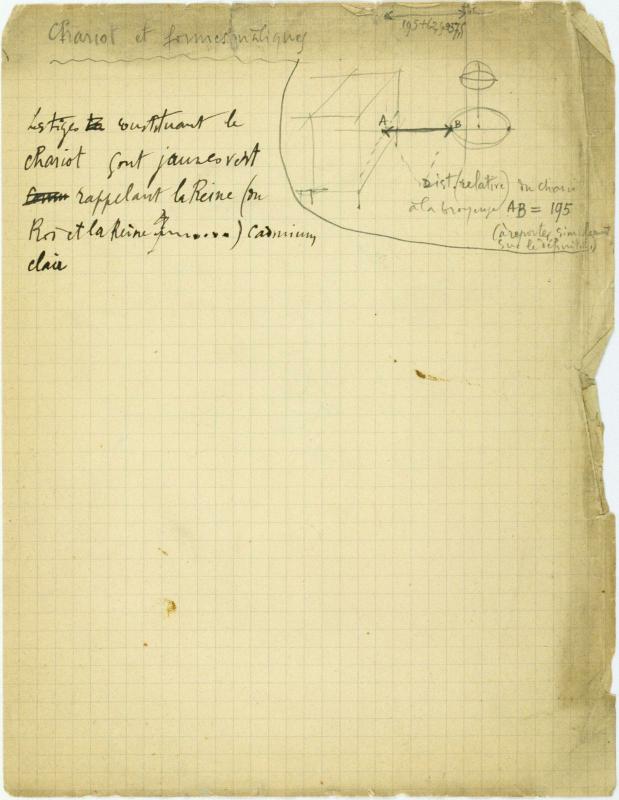 Chariot et formes mâliques
195+62,5=257,5
A
B
Les tiges constituant le
chariot sont jaunes vert
rappelant la Reine (du
Roi et la Reine ......) Cadmium
clair
Dist (relative) du chariot
à la broyeuse AB = 195
(à reporter simplement
sur le définitif)